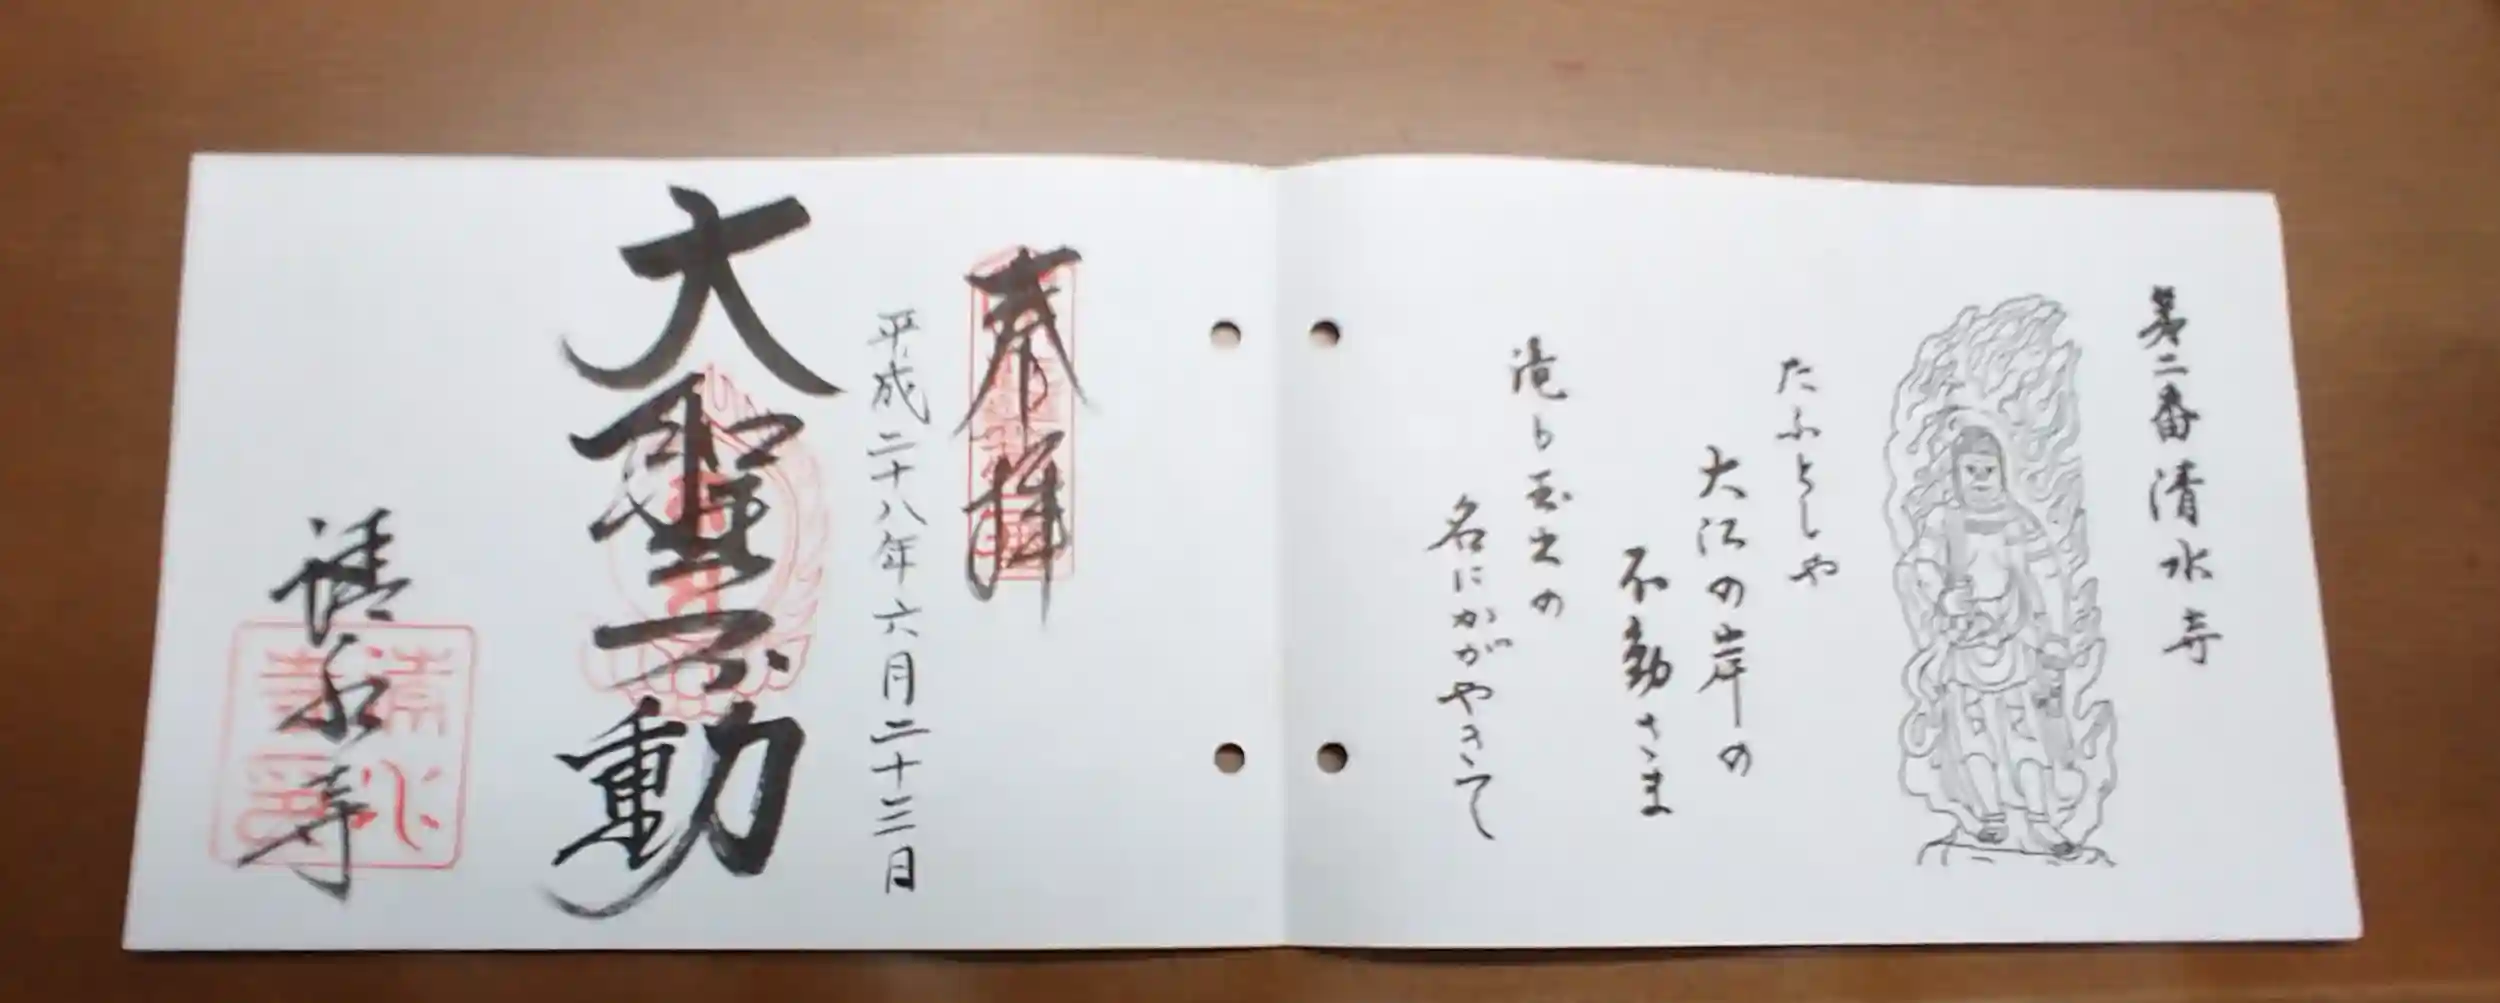 第二番 清水寺
たふとしや
大江の岸の
不動さま
滝も玉出の
名にかがやきて
奉拝
平成二十八年六月二十三日
大聖不動
清水寺
清水寺印